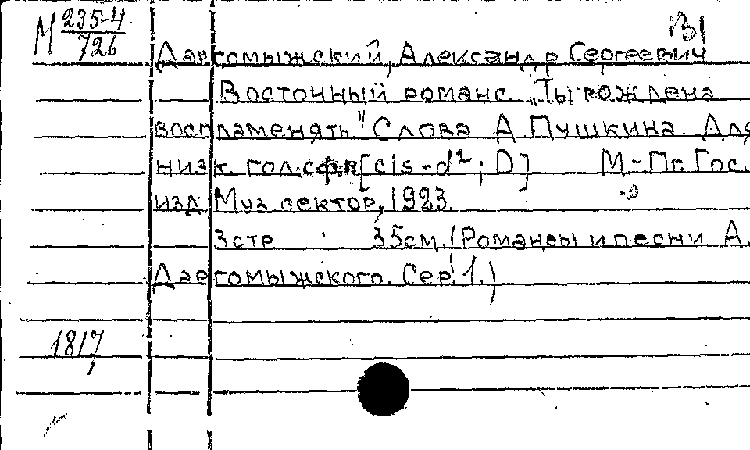 М 235-4
726
131
Даргомыжский, Александр Сергеевич
Восточный романс. „Ты рождена
воспламенять" Слова А. Пушкина. Для
низк. гол. с фп. [cis-d²; D] М.-Пг. Гос.
изд. Муз. сектор, 1923.
3 стр 35 см. (Романсы и песни А.
Даргомыжского. Сер. 1.)
1817